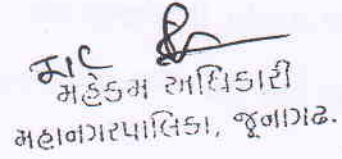 મહેકમ અધિકારી
મહાનગરપાલિકા, જૂનાગઢ.